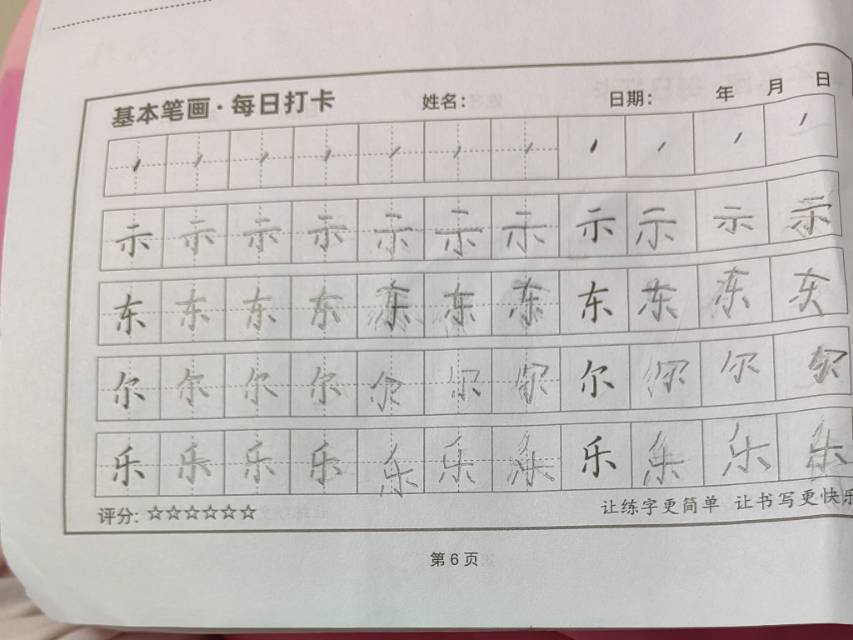 基本笔画·每日打卡 姓名： 日期： 年 月 日
示 示 示 示 示 示 示 示 示 示 示
东 东 东 东 东 东 东 东 东 东 东
尔 尔 尔 尔 尔 尔 尔 尔 尔 尔 尔
乐 乐 乐 乐 乐 乐 乐 乐 乐 乐 乐
评分: ☆☆☆☆☆☆ 让练字更简单 让书写更快乐
第 6 页